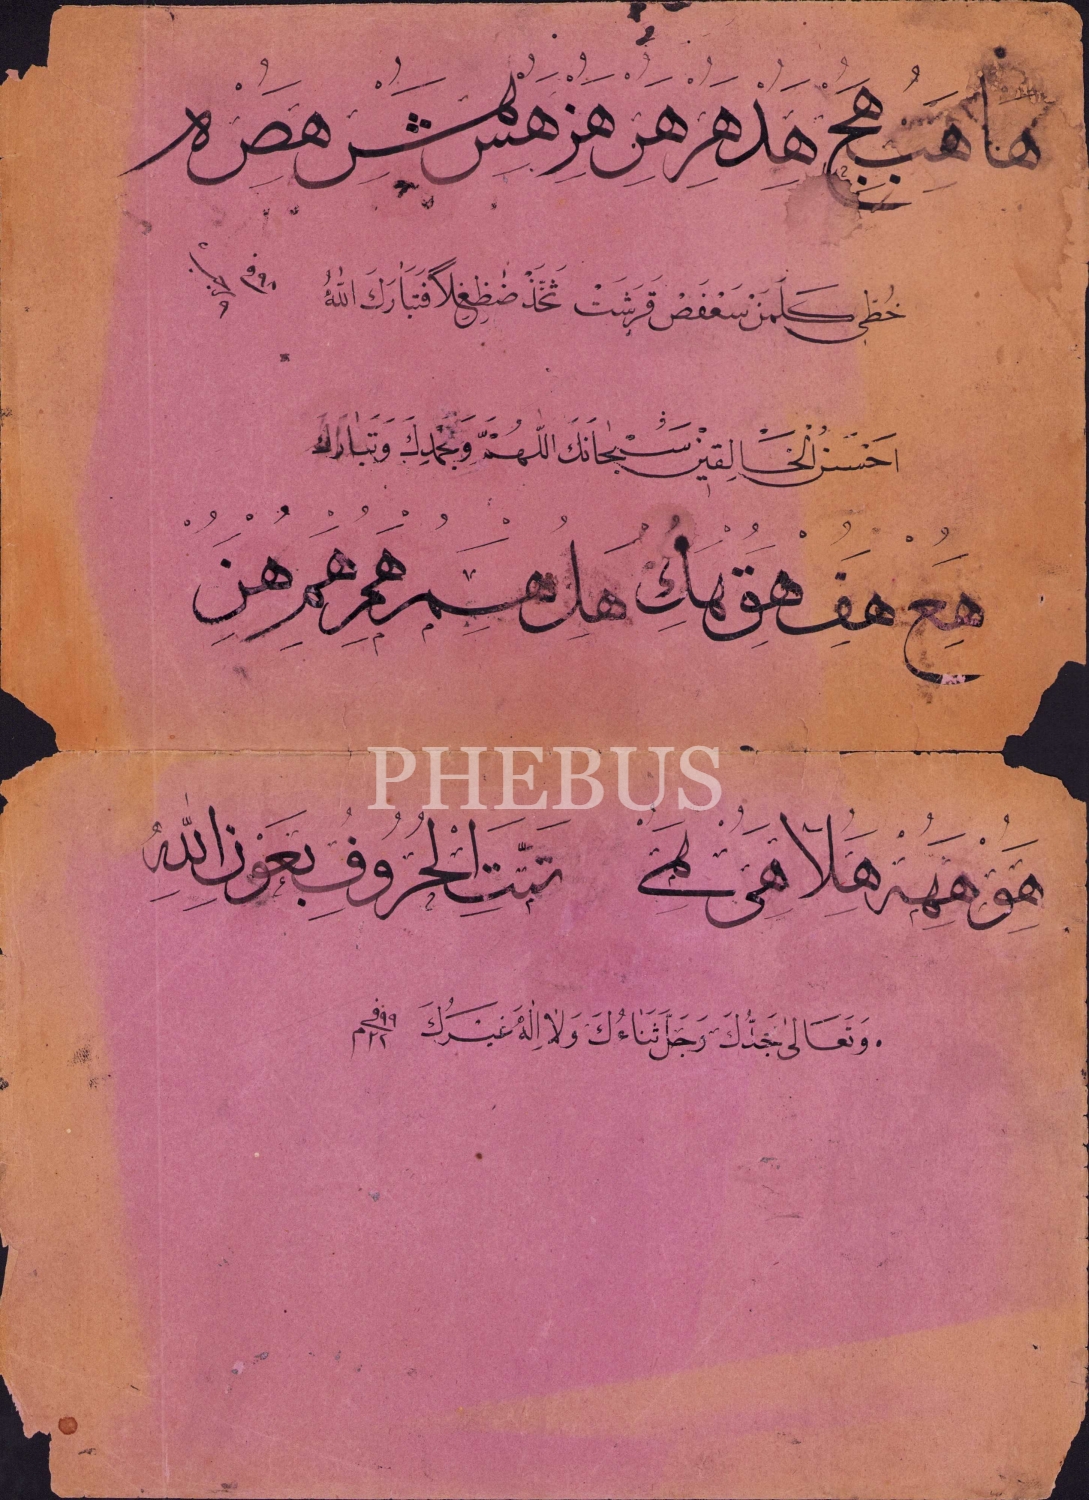 هَا هَبْ هَجْ هَدْ هَرْ هَرْ هَزْ هَسْ هَشْ هَصْ ه
حُطِّي كَلَمَنْ سَعْفَصْ قَرَشَتْ ثَخَّذْ ضَظِغِلاً فَتَبَارَكَ اللهُ
اَحْسَنُ الْخَالِقِيْنَ سُبْحَانَكَ اللّٰهُمَّ وَبِحَمْدِكَ وَتَبَارَكَ
هَعْ هَفْ هَقْ هَكْ هَلْ هَمْ هَمْ هَمْ هَنْ
PHEBUS
هَوْ هَهْ هَلَا هَيْ هَيْ تَمَّتِ الْحُرُوفُ بِعَوْنِ اللهِ
وَتَعَالٰى جَدُّكَ وَجَلَّ ثَنَاءُكَ وَلَا اِلٰهَ غَيْرُكَ